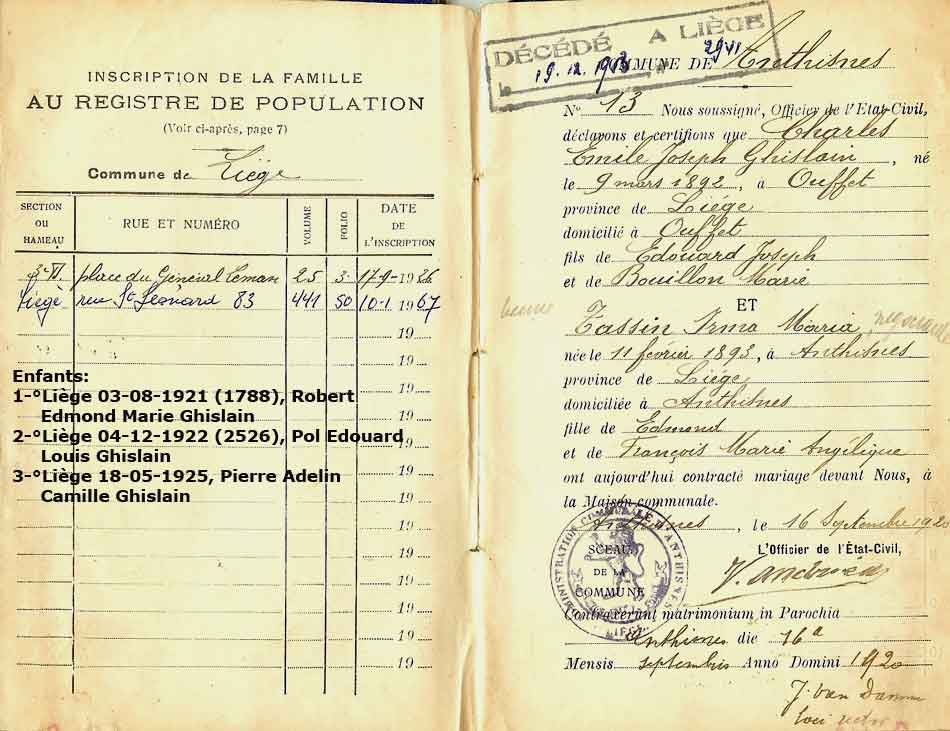 INSCRIPTION DE LA FAMILLE
AU REGISTRE DE POPULATION
(Voir ci-après, page 7)
Commune de Liège
SECTION OU HAMEAU
RUE ET NUMÉRO
VOLUME
FOLIO
DATE DE L'INSCRIPTION
place du Général Leman 25 3 17-9-1926
Liège rue St Léonard 83 441 50 10-1 1967
19
19
19
19
19
19
19
19
19
19
19
19
19
Enfants:
1-°Liège 03-08-1921 (1788), Robert
Edmond Marie Ghislain
2-°Liège 04-12-1922 (2526), Pol Edouard
Louis Ghislain
3-°Liège 18-05-1925, Pierre Adelin
Camille Ghislain
DÉCÉDÉ A LIÈGE
COMMUNE DE Anthisnes
N° 13 Nous soussigné, Officier de l'Etat-Civil,
déclarons et certifions que Charles
Emile Joseph Ghislain, né
le 9 mars 1892, à Ouffet
province de Liége
domicilié à Ouffet
fils de Edouard Joseph
et de Bouillon Marie
ET
Tassin Irma Maria,
née le 11 février 1893, à Anthisnes
province de Liége
domiciliée à Anthisnes
fille de Edmond
et de François Marie Angélique
ont aujourd'hui contracté mariage devant Nous, à
la Maison communale.
Anthisnes, le 16 Septembre 1920
L'Officier de l'État-Civil,
SCEAU
DE LA
COMMUNE
ADMINISTRATION COMMUNALE D'ANTHISNES
Contraxerunt matrimonium in Parochia
die 16a
Mensis septembris Anno Domini 1920
J. Van Damme